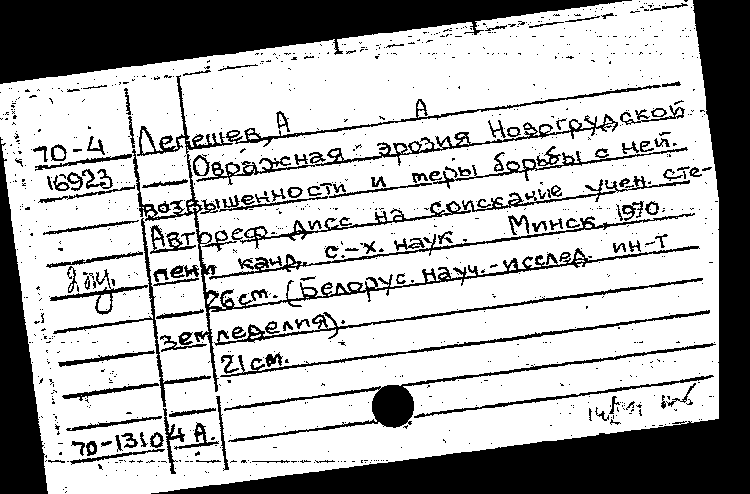 70-4 Лепешев, А А
16923 Овражная эрозия Новогрудской
возвышенности и меры борьбы с ней.
Автореф. дисс на соискание учен. сте-
2 пени канд. с.-х. наук. Минск, 1970.
26 ст. (Белорус. науч.-исслед. ин-т
земледелия).
21 см.
70-13104 А.